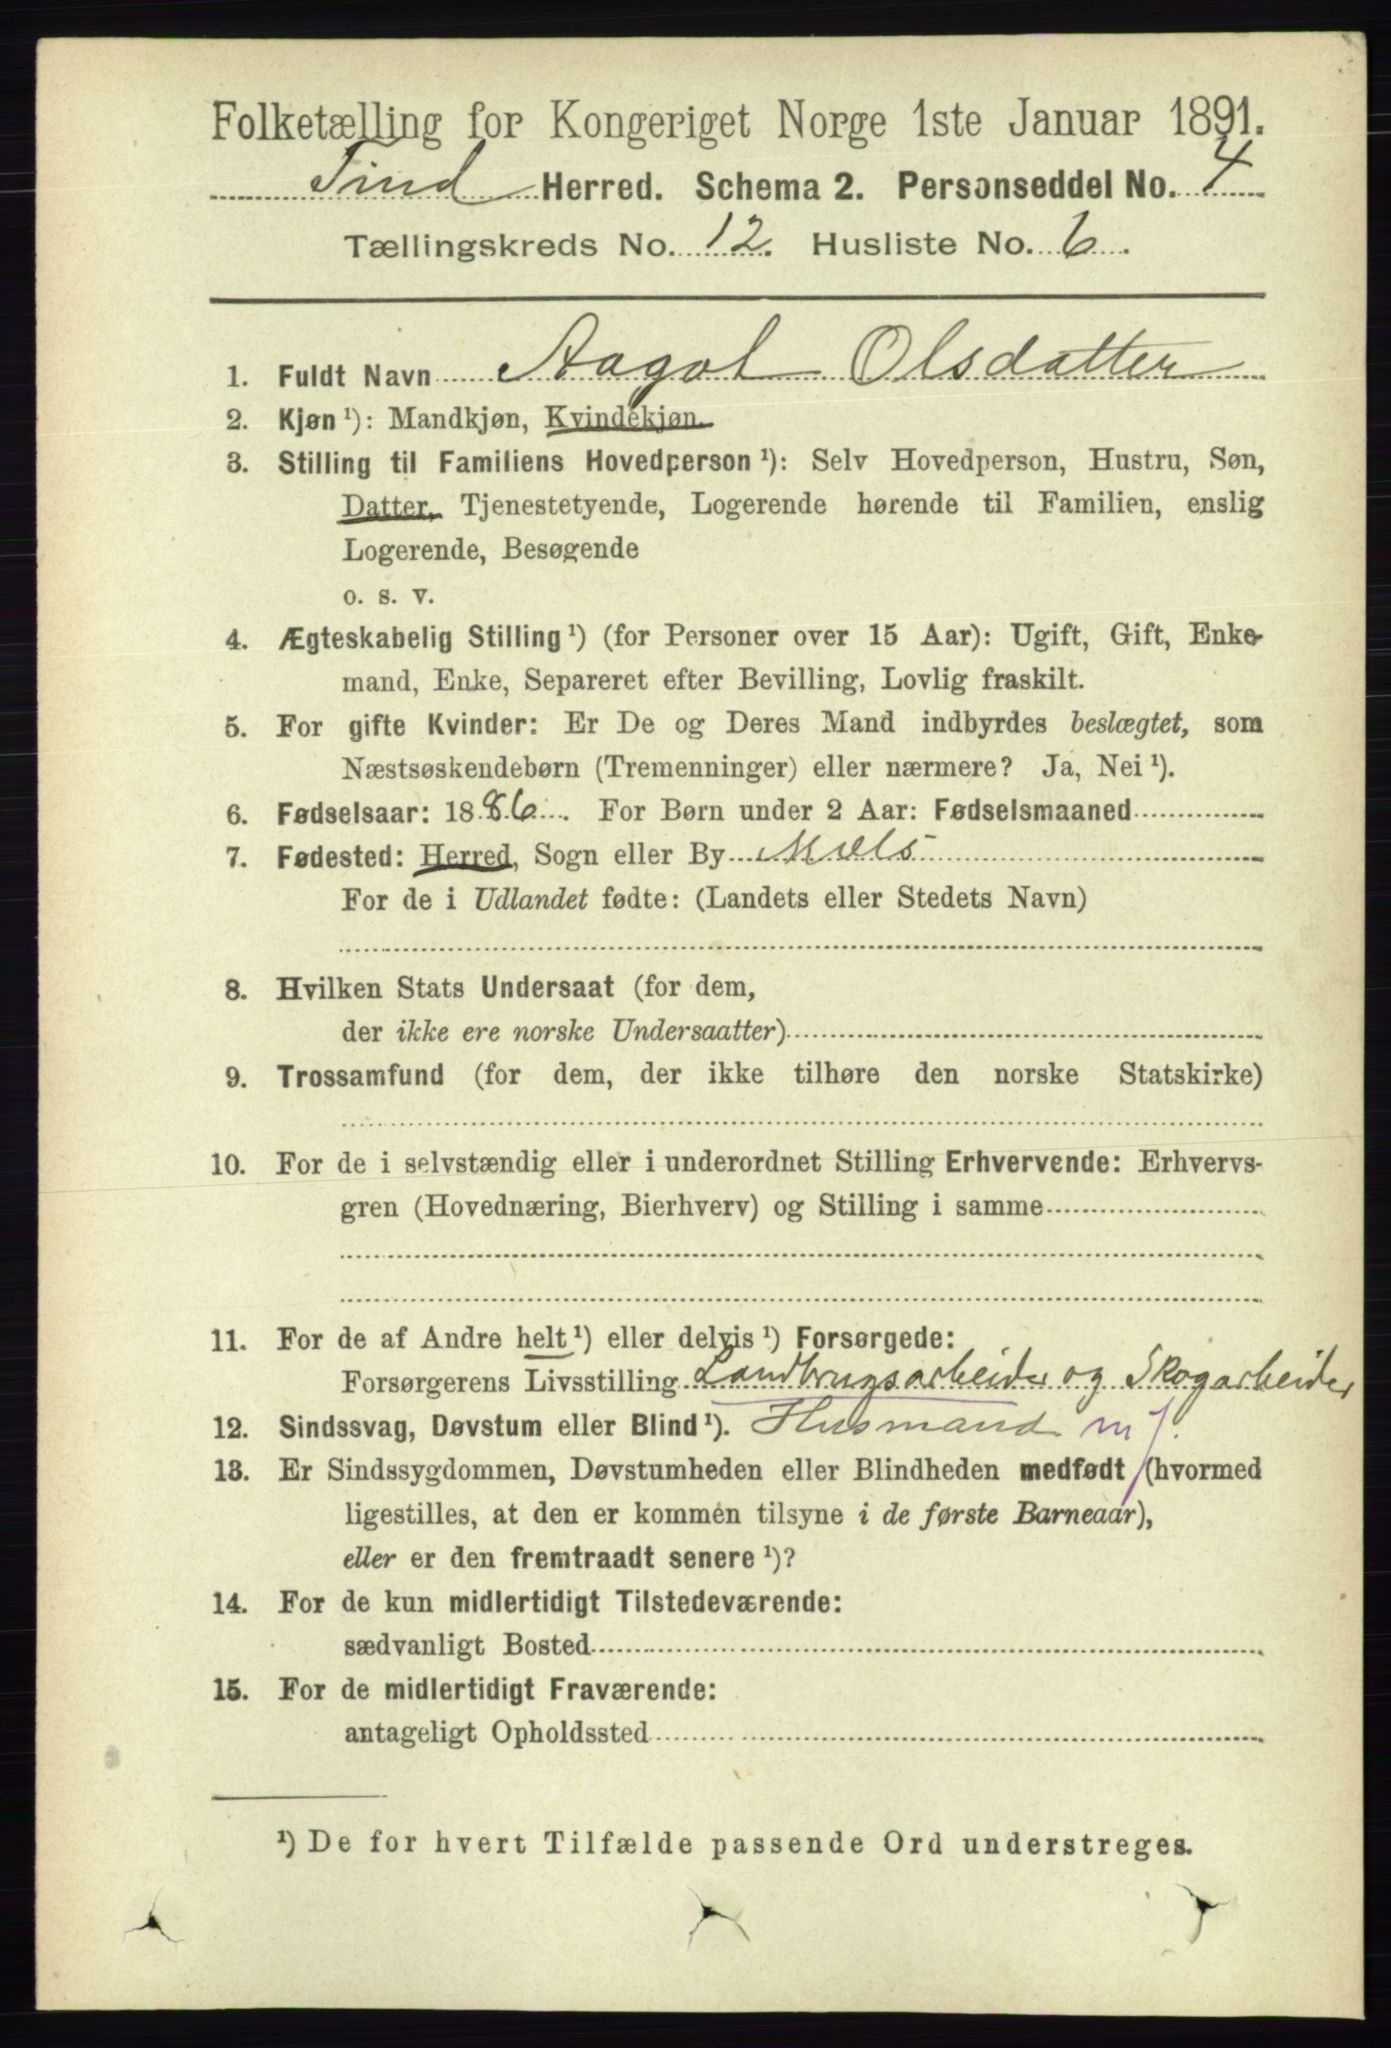 Folketælling for Kongeriget Norge 1ste Januar 1891.
Tind Herred. Schema 2. Personseddel No. 4
Tællingskreds No. 12. Husliste No. 6.
1. Fuldt Navn Aagot Olsdatter
2. Kjøn ¹): Mandkjøn, Kvindekjøn.
3. Stilling til Familiens Hovedperson ¹): Selv Hovedperson, Hustru, Søn,
Datter, Tjenestetyende, Logerende hørende til Familien, enslig
Logerende, Besøgende
o. s. v.
4. Ægteskabelig Stilling ¹) (for Personer over 15 Aar): Ugift, Gift, Enke-
mand, Enke, Separeret efter Bevilling, Lovlig fraskilt.
5. For gifte Kvinder: Er De og Deres Mand indbyrdes beslægtet, som
Næstsøskendebørn (Tremenninger) eller nærmere? Ja, Nei ¹).
6. Fødselsaar: 1886. For Børn under 2 Aar: Fødselsmaaned
7. Fødested: Herred, Sogn eller By Mæls
For de i Udlandet fødte: (Landets eller Stedets Navn)
8. Hvilken Stats Undersaat (for dem,
der ikke ere norske Undersaatter)
9. Trossamfund (for dem, der ikke tilhøre den norske Statskirke)
10. For de i selvstændig eller i underordnet Stilling Erhvervende: Erhvervs-
gren (Hovednæring, Bierhverv) og Stilling i samme
11. For de af Andre helt ¹) eller delvis ¹) Forsørgede:
Forsørgerens Livsstilling Landbrugsarbeider og Skogarbeider
12. Sindssvag, Døvstum eller Blind ¹). Husmand m/.
13. Er Sindssygdommen, Døvstumheden eller Blindheden medfødt (hvormed
ligestilles, at den er kommen tilsyne i de første Barneaar),
eller er den fremtraadt senere ¹)?
14. For de kun midlertidigt Tilstedeværende:
sædvanligt Bosted
15. For de midlertidigt Fraværende:
antageligt Opholdssted
¹) De for hvert Tilfælde passende Ord understreges.